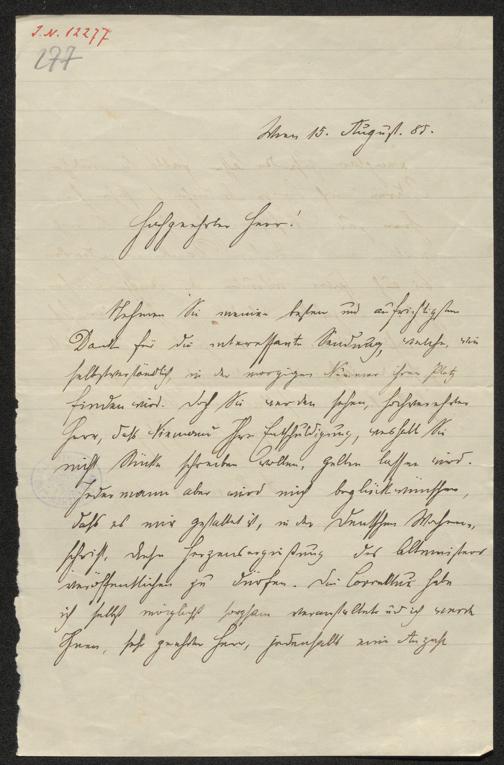 J.N. 12277
177
Wien 15. August. 85.
Hochgeehrter Herr!
Nehmen Sie meinen besten und aufrichtigsten
Dank für die interessante Sendung, welche, wie
selbstverständlich in der morgigen Nummer ihren Platz
finden wird. Doch Sie werden sehen, hochverehrter
Herr, daß Niemand Ihre Entschuldigung, weshalb Sie
nicht schreiben wollen, gelten lassen wird.
Jedermann aber wird mich beglückwünschen,
daß es mir gestattet ist, in der Deutschen Wochen-
schrift, diese Herzensergießung des Altmeisters
veröffentlichen zu dürfen. Die Correktur habe
ich selbst möglichst sorgsam veranstaltet und ich werde
Ihnen, sehr geehrter Herr, jedenfalls eine Anzahl